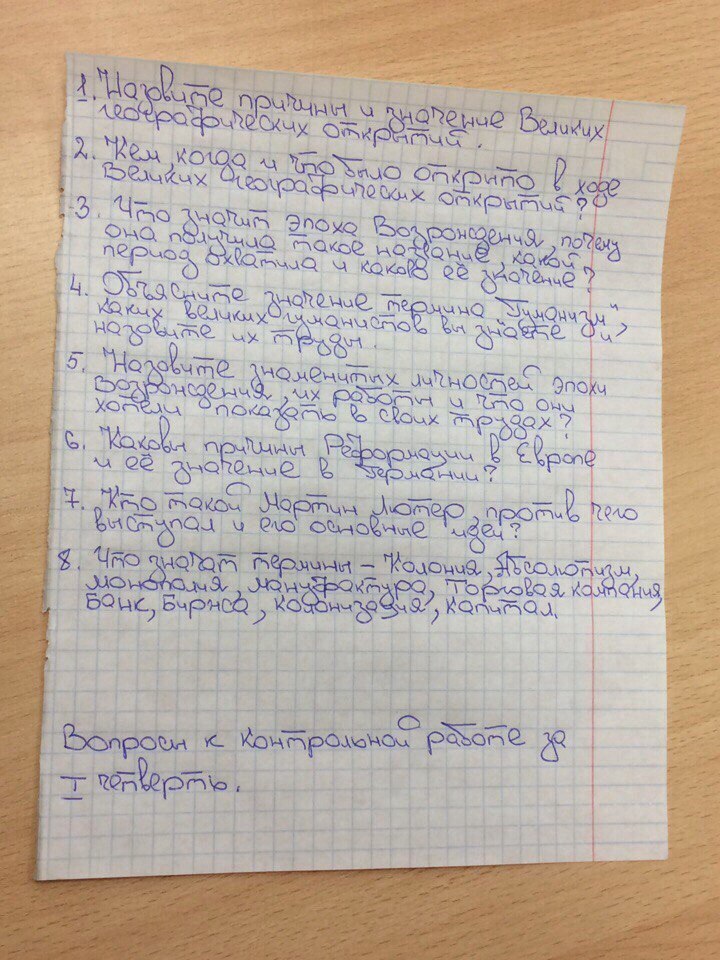 1. Назовите причины и значение Великих
географических открытий.
2. Кем, когда и что было открыто в ходе
Великих географических открытий?
3. Что значит эпоха Возрождения, почему
она получила такое название, какой
период охватила и каково её значение?
4. Объясните значение термина "Гуманизм",
каких великих гуманистов вы знаете и
назовите их труды.
5. Назовите знаменитых личностей эпохи
Возрождения, их работы и что они
хотели показать в своих трудах?
6. Каковы причины Реформации в Европе
и её значение в Германии?
7. Кто такой Мартин Лютер, против чего
выступал и его основные идеи?
8. Что значат термины - Колония, Абсолютизм,
монополия, мануфактура, Торговая компания,
Банк, Биржа, колонизация, капитал.
Вопросы к контрольной работе за
I четверть.